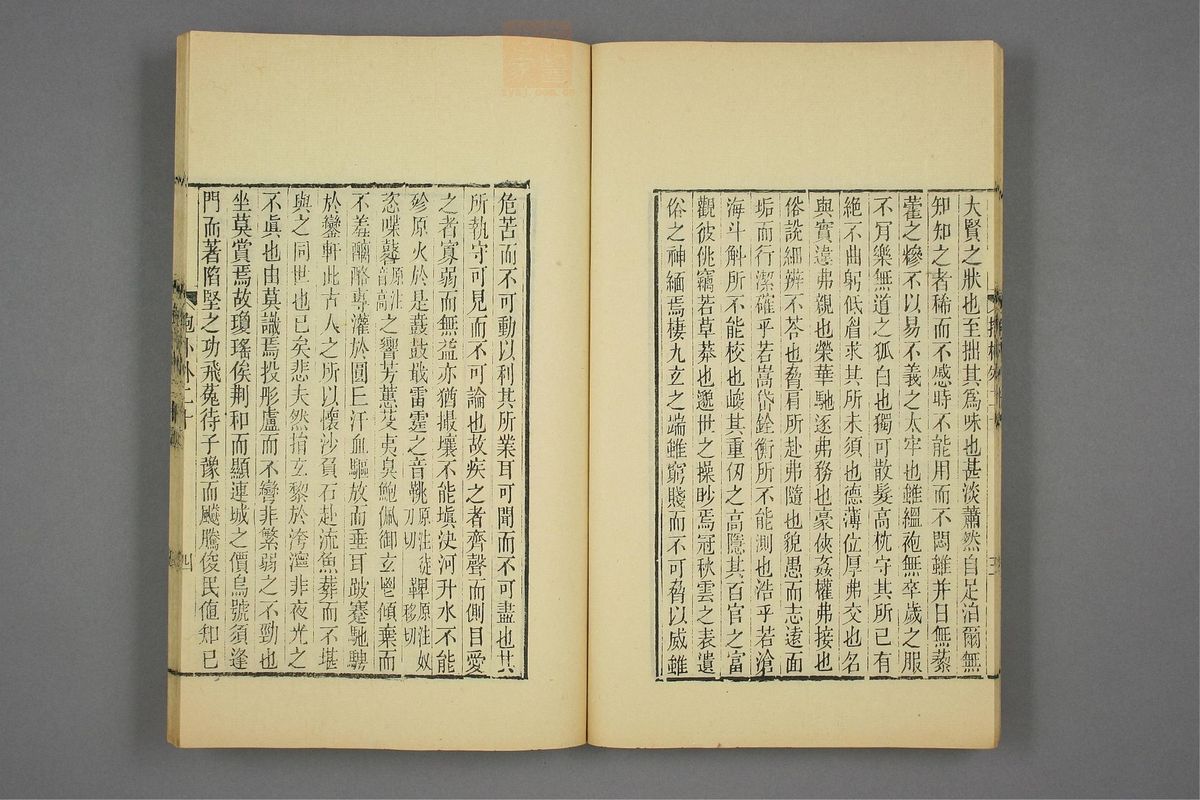 大賢之狀也至拙其爲味也甚淡蕭然自足泊爾無
知知之者稀而不感時不能用而不悶雖并日無藜
藿之糝不以易不義之太牢也雖緼袍無卒歲之服
不肎樂無道之狐白也獨可散髮高枕守其所已有
絶不曲躬低眉求其所未須也德薄位厚弗交也名
與實違弗親也榮華馳逐弗務也豪俠姦權弗接也
俗說細辨不荅也脅肩所赴弗隨也貌愚而志遠面
垢而行潔確乎若嵩岱銓衡所不能測也浩乎若滄
海斗斛所不能校也峻其重仞之高隱其百官之富
觀彼佻竊若草莽也邈世之操眇焉冠秋雲之表遺
俗之神緬焉棲九玄之端雖窮賤而不可脅以威雖
危苦而不可動以利其所業耳可聞而不可盡也其
所執守可見而不可論也故疾之者齊聲而側目愛
之者寡弱而無益亦猶撮壤不能塡決河升水不能
殄原火於是鼖鼓戢雷霆之音鞉原注徒刀切鞞原注奴移切
恣喋鼛原注音高之響芳蕙芟夷臭鮑佩御玄鬯傾棄而
不羞醨酪專灌於圓丘汗血驅放而垂耳跛蹇馳騁
於鑾軒此古人之所以懷沙負石赴流魚葬而不堪
與之同世也已矣悲夫然捐玄黎於洿濘非夜光之
不眞也由莫識焉投彤盧而不彎非繁弱之不勁也
坐莫賞焉故瓊瑤俟荆和而顯連城之價烏號須逢
門而著陷堅之功飛菟待子豫而飈騰俊民値知己
抱朴外二十
四
三